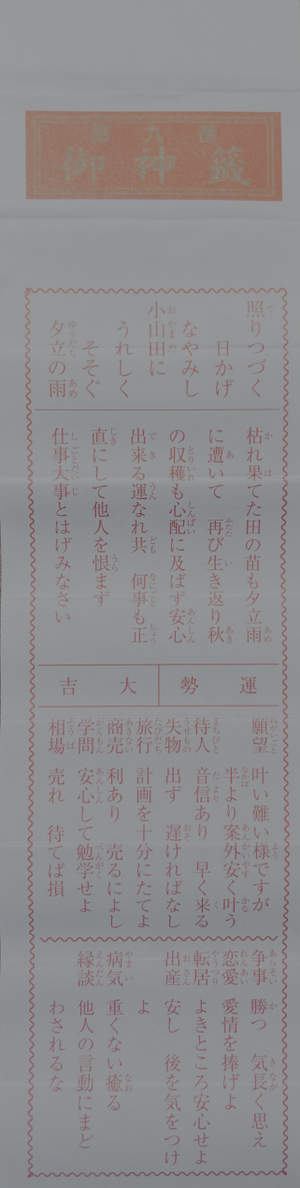 第九番
御神籤
照りつづく
日かげ
なやみし
小山田に
うれしく
そそぐ
夕立の雨
枯れ果てた田の苗も夕立雨
に遭いて 再び生き返り秋
の収穫も心配に及ばず安心
出来る運なれ共 何事も正
直にして他人を恨まず
仕事大事とはげみなさい
運勢 大吉
願望 叶い難い様ですが
半より案外安く叶う
待人 音信あり 早く来る
失物 出ず 遅ければなし
旅行 計画を十分にたてよ
商売 利あり 売るによし
学問 安心して勉学せよ
相場 売れ 待てば損
争事 勝つ 気長く思え
恋愛 愛情を捧げよ
転居 よきところ安心せよ
出産 安し 後を気をつけ
よ
病気 重くない癒る
縁談 他人の言動にまど
わされるな